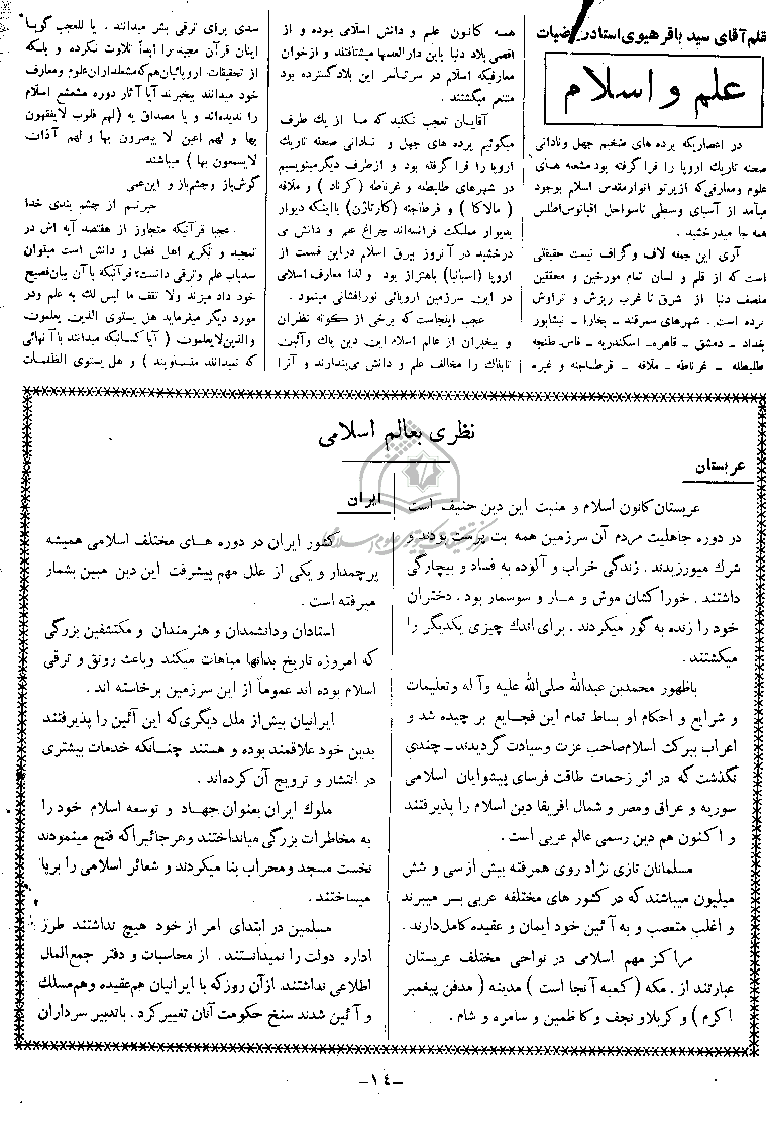 قلم آقای سید باقر هیوی استاد ریاضیات
علم و اسلام
در اعصاریکه پرده های ضخیم جهل و نادانی
صحنه تاریك اروپا را فرا گرفته بود مشعله های
علوم و معارفی که از پرتو انوار مقدس اسلام بوجود
میآمد از آسیای وسطی تا سواحل اقیانوس اطلس
همه جا میدرخشید .
آری این جمله لاف و گزاف نیست حقیقتی
است که از قلم و لسان تمام مورخین و محققین
منصف دنیا از شرق تا غرب ریزش و تراوش
کرده است . شهرهای سمرقند ـ بخارا ـ نیشابور
بغداد ـ دمشق ـ قاهره ـ اسکندریه ـ فاس طنجه
طلیطله ـ غرناطه ـ ملاقه ـ قرطاجنه و غیره
همه کانون علم و دانش اسلامی بوده و از
اقصی بلاد دنیا باین دارالعلمها میشتافتند و از خوان
معارفیکه اسلام در سرتاسر این بلاد گسترده بود
متنعم میگشتند .
آقایان تعجب نکنید که ما از یك طرف
میگوئیم پرده های جهل و نادانی صحنه تاریك
اروپا را فرا گرفته بود و از طرف دیگر مینویسیم
در شهرهای طلیطله و غرناطه ( گرناد ) و ملاقه
( مالاکا ) و قرطاجنه (کارتاژن) با اینکه دیوار
بدیوار مملکت فرانسه اند چراغ علم و دانش می
درخشید در آنروز بیرق اسلام در این قسمت از
اروپا (اسپانیا) باهتزاز بود و لذا معارف اسلامی
در این سرزمین اروپائی نورافشانی مینمود .
عجب اینجاست که برخی از کوته نظران
و بیخبران از عالم اسلام این دین پاك و آئین
تابناك را مخالف علم و دانش می پندارند و آنرا
سدی برای ترقی بشر میدانند . یا للعجب گویا
اینان قرآن مجید را ابداً تلاوت نکرده و یا بلکه
از تحقیقات اروپائیان هم که مشعلداران علوم و معارف
خود میدانند بیخبرند آیا آثار دوره مشعشع اسلام
را ندیده اند و یا مصداق یه (لهم قلوب لایفقهون
بها و لهم اعین لا یبصرون بها و لهم آذات
لا یسمعون بها ) میباشند
گوش باز و چشم باز و این عمی
حیرتم از چشم بندی خدا
عجبا قرآنیکه متجاوز از هفتصد آیه اش در
تمجید و تکریم اهل فضل و دانش است میتوان
سد باب علم و ترقی دانست؟ قرآنیکه با آن بیان فصیح
خود داد میزند ولا تقف ما لیس لك به علم و در
مورد دیگر میفرماید هل یستوی الذین یعلمون
والذین لا یعلمون ( آیا کسانیکه میدانند با آنهائی
که نمیدانند متساویند ) و هل یستوی الظلمات
نظری بعالم اسلامی
عربستان
عربستان کانون اسلام و منبت این دین حنیف است
در دوره جاهلیت مردم آن سرزمین همه بت پرست بودند و
شرك میورزیدند . زندگی خراب و آلوده به فساد و بیچارگی
داشتند . خوراکشان موش و مار و سوسمار بود . دختران
خود را زنده به گور میکردند . برای اندك چیزی یکدیگر را
میکشتند .
باظهور محمد بن عبدالله صلی الله علیه و آله و تعلیمات
و شرایع و احکام او بساط تمام این فجایع بر چیده شد و
اعراب ببرکت اسلام صاحب عزت و سیادت گردیدند ـ چندی
نگذشت که در اثر زحمات طاقت فرسای پیشوایان اسلامی
سوریه و عراق و مصر و شمال افریقا دین اسلام را پذیرفتند
و اکنون هم دین رسمی عالم عربی است .
مسلمانان تازی نژاد روی همرفته بیش از سی و شش
میلیون میباشند که در کشور های مختلفه عربی بسر میبرند
و اغلب متعصب و به آئین خود ایمان و عقیده کامل دارند .
مراکز مهم اسلامی در نواحی مختلف عربستان
عبارتند از . مکه (کعبه آنجا است ) مدینه ( مدفن پیغمبر
اکرم ) و کربلا و نجف و کاظمین و سامره و شام .
ایران
کشور ایران در دوره های مختلف اسلامی همیشه
پرچمدار و یکی از علل مهم پیشرفت این دین مبین بشمار
میرفته است .
استادان و دانشمدان و هنرمندان و مکتشفین بزرگی
که امروزه تاریخ بدانها مباهات میکند و باعث رونق و ترقی
اسلام بوده اند عموماً از این سرزمین برخاسته اند .
ایرانیان بیش از ملل دیگری که این آئین را پذیرفتند
بدین خود علاقمند بوده و هستند چنانکه خدمات بیشتری
در انتشار و ترویج آن کرده اند .
ملوك ایران بعنوان جهاد و توسعه اسلام خود را
به مخاطرات بزرگی میانداختند و هر جائیرا که فتح مینمودند
نخست مسجد و محراب بنا میکردند و شعائر اسلامی را برپا
میساختند .
مسلمین در ابتدای امر از خود هیچ نداشتند طرز
اداره دولت را نمیدانستند . از محاسبات و دفتر جمع المال
اطلاعی نداشتند. از آن روز که با ایرانیان هم عقیده و هم مسلك
و آئین شدند سنخ حکومت آنان تغییر کرد . باتدبیر سرداران
ـ١٤ـ